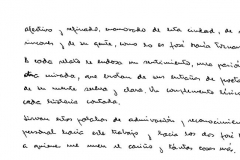 afectivo y refinado, enamorado de esta ciudad, de sus
rincones y de su gente, como no es José María
A cada relato se endosa un sentimiento, una pasión
otra mirada, que brotan de un entictos de poeta
de su mente serena y clara. Un complemento lírico
cada historia contada.
Sirvan estas palabras de admiración y reconocimiento
personal hacia este trabajo y hacia los dos José
a quienes me unen el cariño y tantas cosas más,